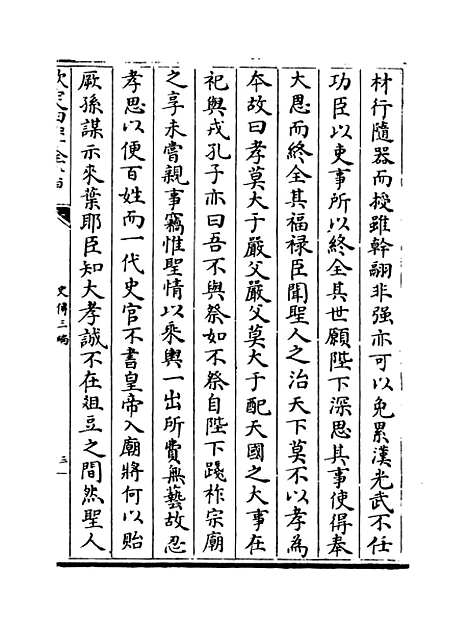 材行隨器而授雖幹翮非强亦可以免累漢光武不任
功臣以吏事所以終全其世願陛下深思其事使得奉
大恩而終全其福禄臣聞聖人之治天下莫不以孝為
本故曰孝莫大于嚴父嚴父莫大于配天國之大事在
祀與戎孔子亦曰吾不與祭如不祭自陛下踐祚宗廟
之享未嘗親事竊惟聖情以乘輿一出所費無藝故忍
孝思以便百姓而一代史官不書皇帝入廟將何以貽
厥孫謀示來葉耶臣知大孝誠不在俎豆之間然聖人
欽定四庫全書
史傳三編
三